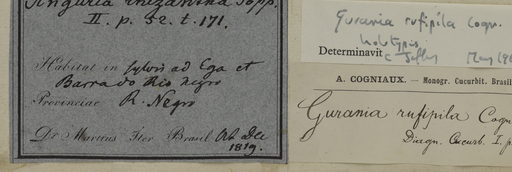 Anguria rhizantha Popp.
II. p. 52. t. 171.
Habitat in sylvis ad Ega et
Barra do Rio negro
Provinciae R. Negro
Dr Martius Iter Brasil Oct Dec
1819.
Gurania rufipila Cogn.
holotypus
Determinavit C. Jeffrey May 196
A. COGNIAUX. — Monogr. Cucurbit. Brasil
Gurania rufipila Cogn
Diagn. Cucurb. I. p.